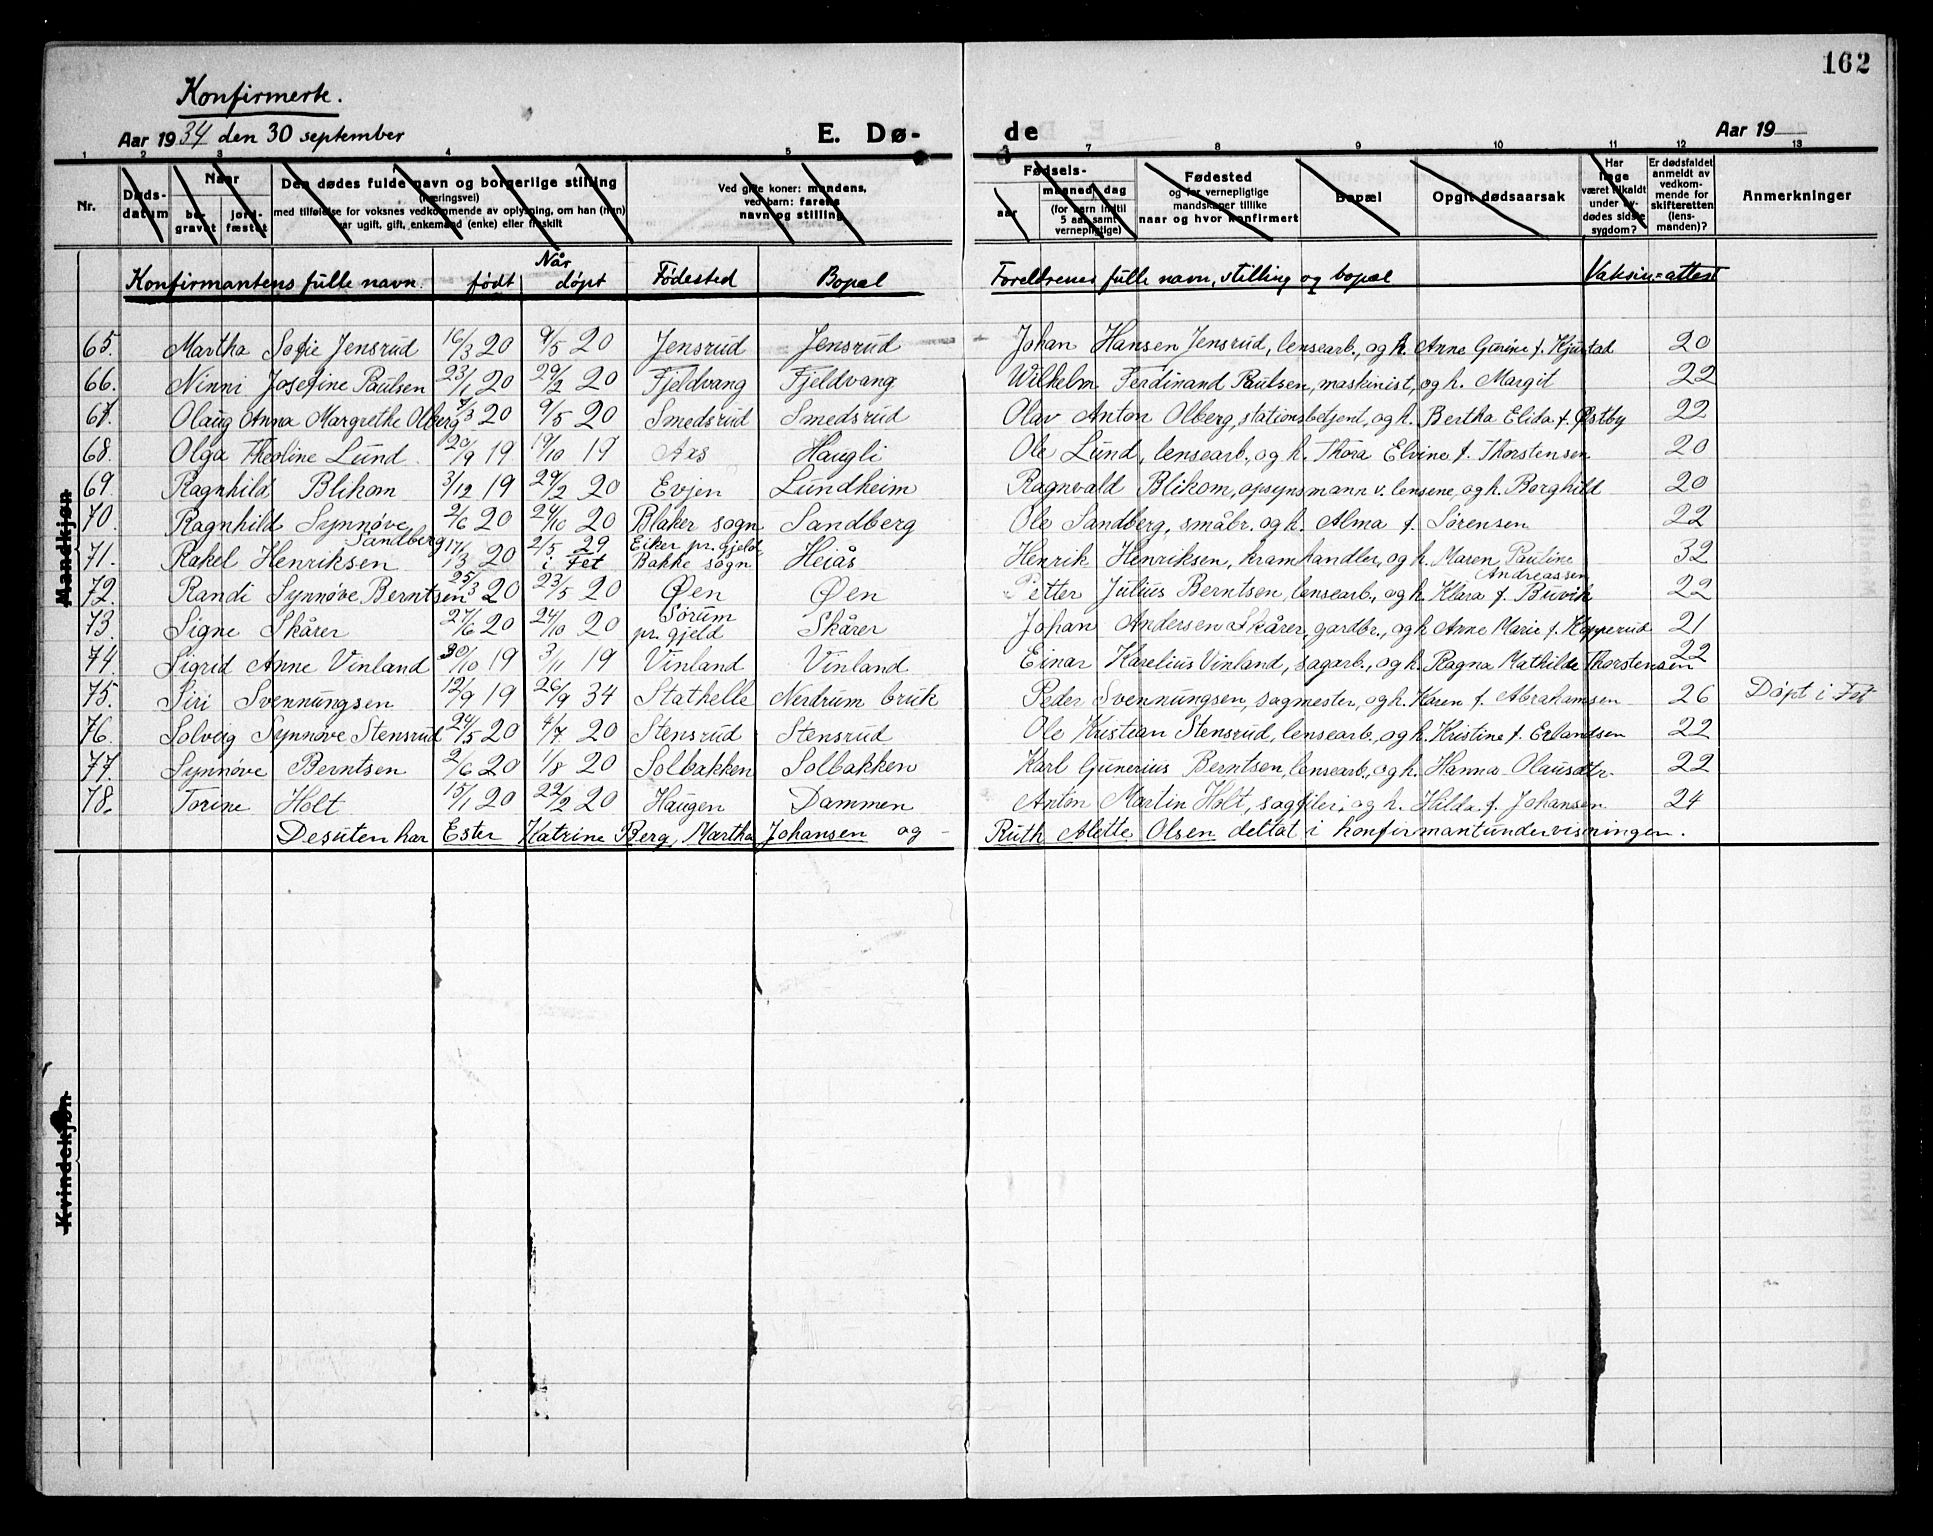 162
Konfirmerte.
Aar 1934 den 30 september E. Dø- de Aar 19
1 2 3 4 5 7 8 9 10 11 12 13
Nr. Døds-datum Naar be-gravet jord-fæstet Den dødes fulde navn og borgerlige stilling (næringsvei) med tilføielse for voksnes vedkommende av oplysning, om han (hun) var ugift, gift, enkemand (enke) eller fraskilt Ved gifte koner: mandens, ved barn: farens navn og stilling Fødsels- aar maaned dag (for barn indtil 5 aar samt vernepligtige) Fødested og for vernepligtige mandskaper tillike naar og hvor konfirmert Bopæl Opgit dødsaarsak Har læge været tilkaldt under avdødes sidste sygdom? Er dødsfaldet anmeldt av vedkommende for skifteretten (lensmanden)? Anmerkninger
Konfirmantens fulle navn. Når født døpt Fødested Bopæl Foreldrenes fulle navn, stilling og bopæl Vaksin=attest
65. Martha Sofie Jensrud 16/3 20 9/5 20 Jensrud Jensrud Johan Hansen Jensrud, lensearb., og h. Anne Gurine f. Hjustad 20
66. Ninni Josefine Paulsen 23/1 20 29/2 20 Fjeldvang Fjeldvang Wilhelm Ferdinand Paulsen, maskinist, og h. Margit 22
67. Olaug Anna Margrethe Olberg 4/3 20 9/5 20 Smedsrud Smedsrud Olav Anton Olberg, stationsbetjent, og h. Bertha Elida f. Østby 22
68. Olga Theoline Lund 20/9 19 19/10 19 Aas Haugli Ole Lund, lensearb., og h. Thora Elvine f. Thorstensen 20
69. Ragnhild Blikom 3/12 19 29/2 20 Evjen Lundheim Ragnvald Blikom, opsynsmann v. lensene, og h. Borghild 20
70. Ragnhild Synnøve Sandberg 2/6 20 24/10 20 Blaker sogn Sandberg Ole Sandberg, småbr. og h. Alma f. Sørensen 22
71. Rakel Henriksen 17/3 20 2/5 29 i Fet Eiker pr. gjeld Bakke sogn Heiås Henrik Henriksen, kramhandler, og h. Maren Pauline Andreassen 32
72. Randi Synnøve Berntsen 25/3 20 23/5 20 Øen Øen Petter Julius Berntsen, lensearb., og h. Klara f. Buvik 22
73. Signe Skårer 27/6 20 24/10 20 Sørum pr. gjeld Skårer Johan Andersen Skårer, gardbr., og h Anne Marie f. Kopperud 21
74. Sigrid Anne Vinland 30/10 19 3/11 19 Vinland Vinland Einar Karelius Vinland, sagarb., og h. Ragna Mathilde Thorstensen 22
75. Siri Svennungsen 12/9 19 26/9 34 Stathelle Nerdrum bruk Peder Svennungsen, sagmester, og h. Karen f. Abrahamsen 26 Døpt i Fet
76. Solveig Synnøve Stensrud 24/5 20 4/7 20 Stensrud Stensrud Ole Kristian Stensrud, lensearb., og h. Kristine f. Erlandsen 22
77. Synnøve Berntsen 2/6 20 1/8 20 Solbakken Solbakken Karl Gunerius Berntsen, lensearb., og h. Hanna Olausdtr. 22
78. Torine Holt 15/1 20 22/2 20 Haugen Dammen Anton Martin Holt, sagfiler, og h. Hilda f. Johansen 24
Desuten har Ester Katrine Berg, Martha Johansen og - Ruth Alette Olsen deltat i konfirmantundervisningen.
Mandkjøn
Kvindekjøn